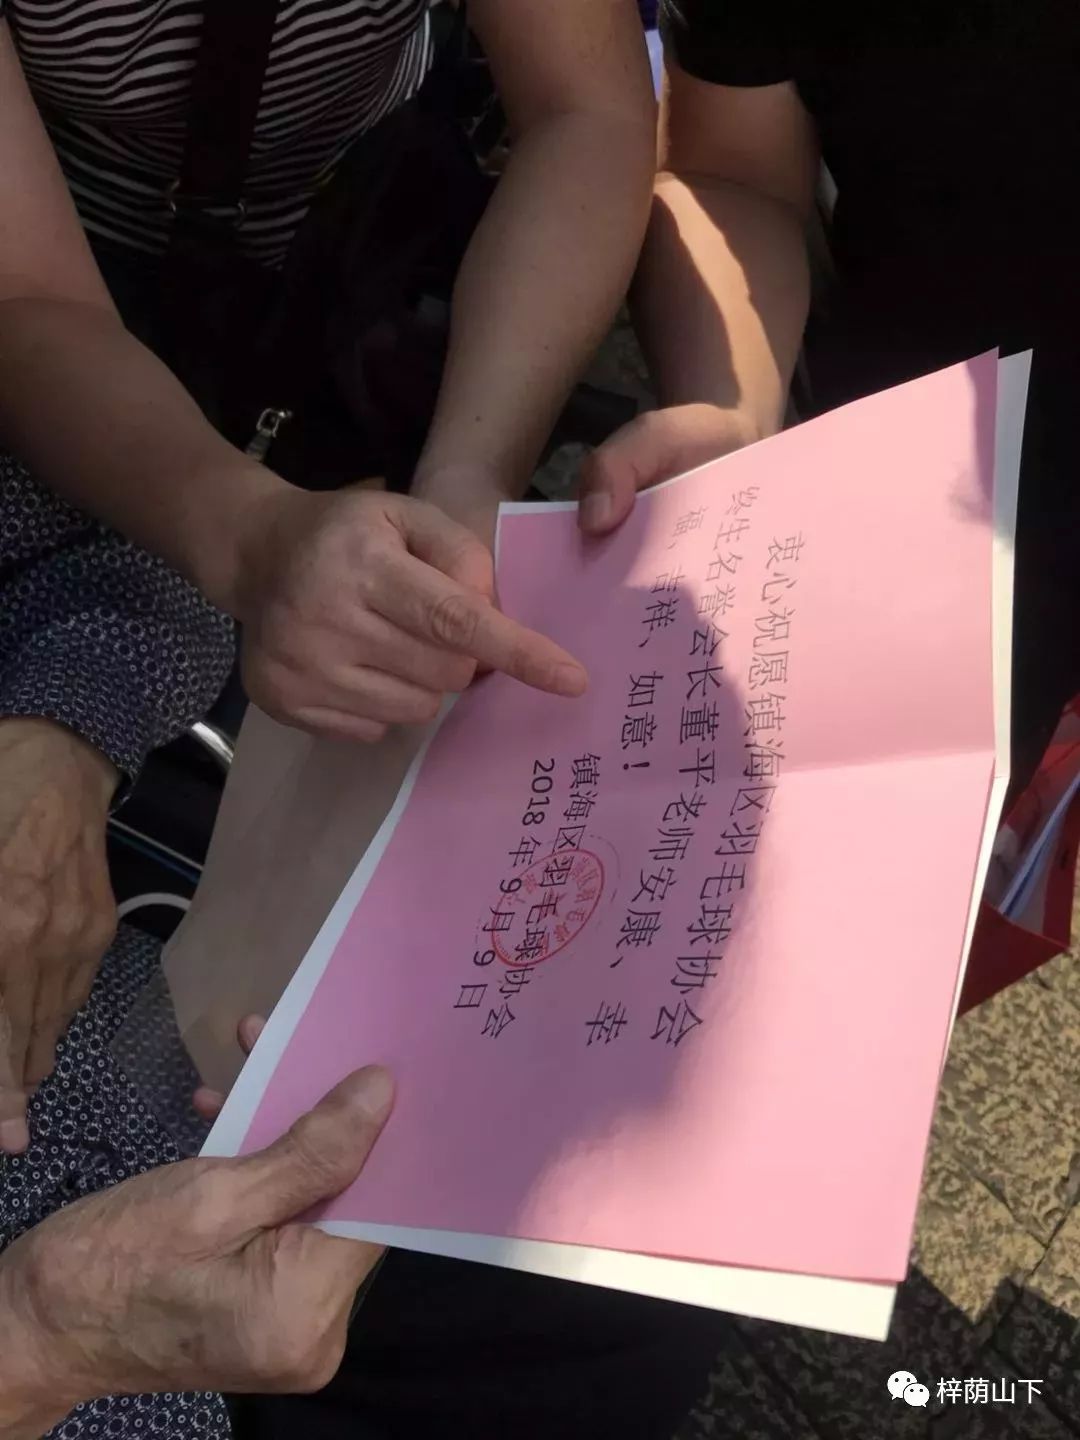 衷心祝愿镇海区羽毛球协会
终生名誉会长董平老师安康、幸
福、吉祥、如意！
镇海区羽毛球协会
2018年9月9日
梓荫山下